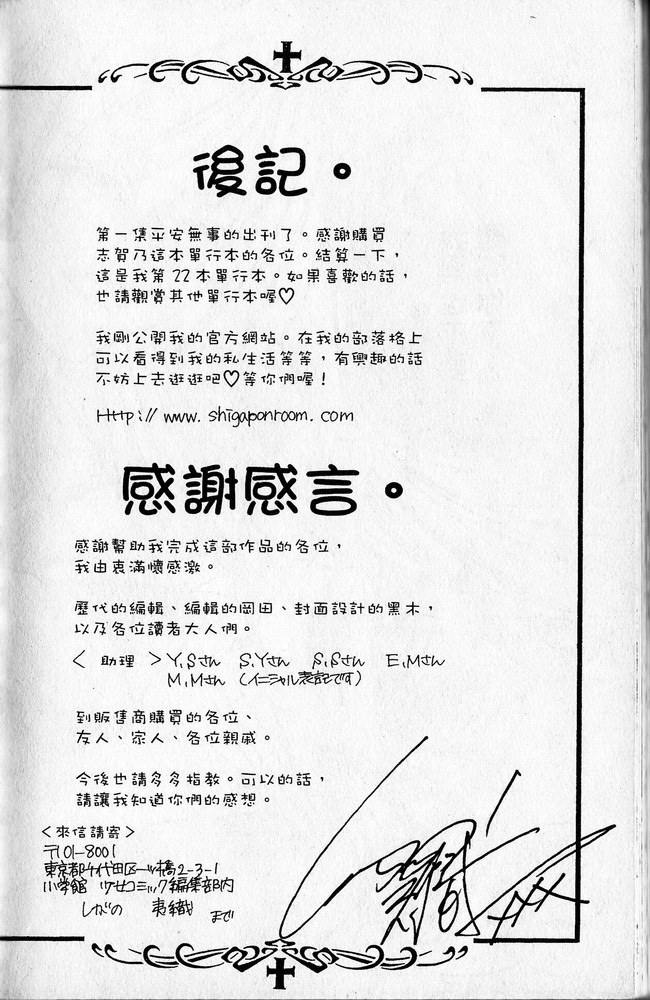 後記。
第一集平安無事的出刊了。感謝購買
志賀乃這本單行本的各位。結算一下，
這是我第22本單行本。如果喜歡的話，
也請觀賞其他單行本喔♡
我剛公開我的官方網站。在我的部落格上
可以看得到我的私生活等等，有興趣的話
不妨上去逛逛吧♡等你們喔！
Http://www.shigaponroom.com
感謝感言。
感謝幫助我完成這部作品的各位，
我由衷滿懷感激。
歷代的編輯、編輯的岡田、封面設計的黑木，
以及各位讀者大人們。
〈助理〉Y.Sさん S.Yさん S.Sさん E.Mさん
M.Mさん（イニシャル表記です）
到販售商購買的各位、
友人、家人、各位親戚。
今後也請多多指教。可以的話，
請讓我知道你們的感想。
〈來信請寄〉
〒101-8001
東京都千代田区一ツ橋2-3-1
小学館 少コミ編集部内
しがの 夷織 まで